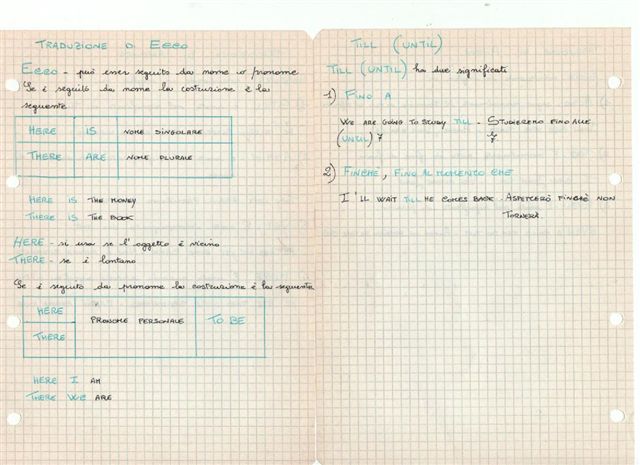 TRADUZIONE DI ECCO
ECCO - può esser seguito da nome o pronome
Se è seguito da nome la costruzione è la
seguente
HERE IS NOME SINGOLARE
THERE ARE NOME PLURALE
HERE IS THE MONEY
THERE IS THE BOOK
HERE - si usa se l'oggetto è vicino
THERE - se è lontano
Se è seguito da pronome la costruzione è la seguente
HERE
PRONOME PERSONALE TO BE
THERE
HERE I AM
THERE WE ARE
TILL (UNTIL)
TILL (UNTIL) ha due significati
1) FINO A
WE ARE GOING TO STUDY TILL - STUDIEREMO FINO ALLE
(UNTIL) 7
2) FINCHÈ, FINO AL MOMENTO CHE
I'LL WAIT TILL HE COMES BACK. ASPETTERÒ FINCHÈ NON
TORNERÀ